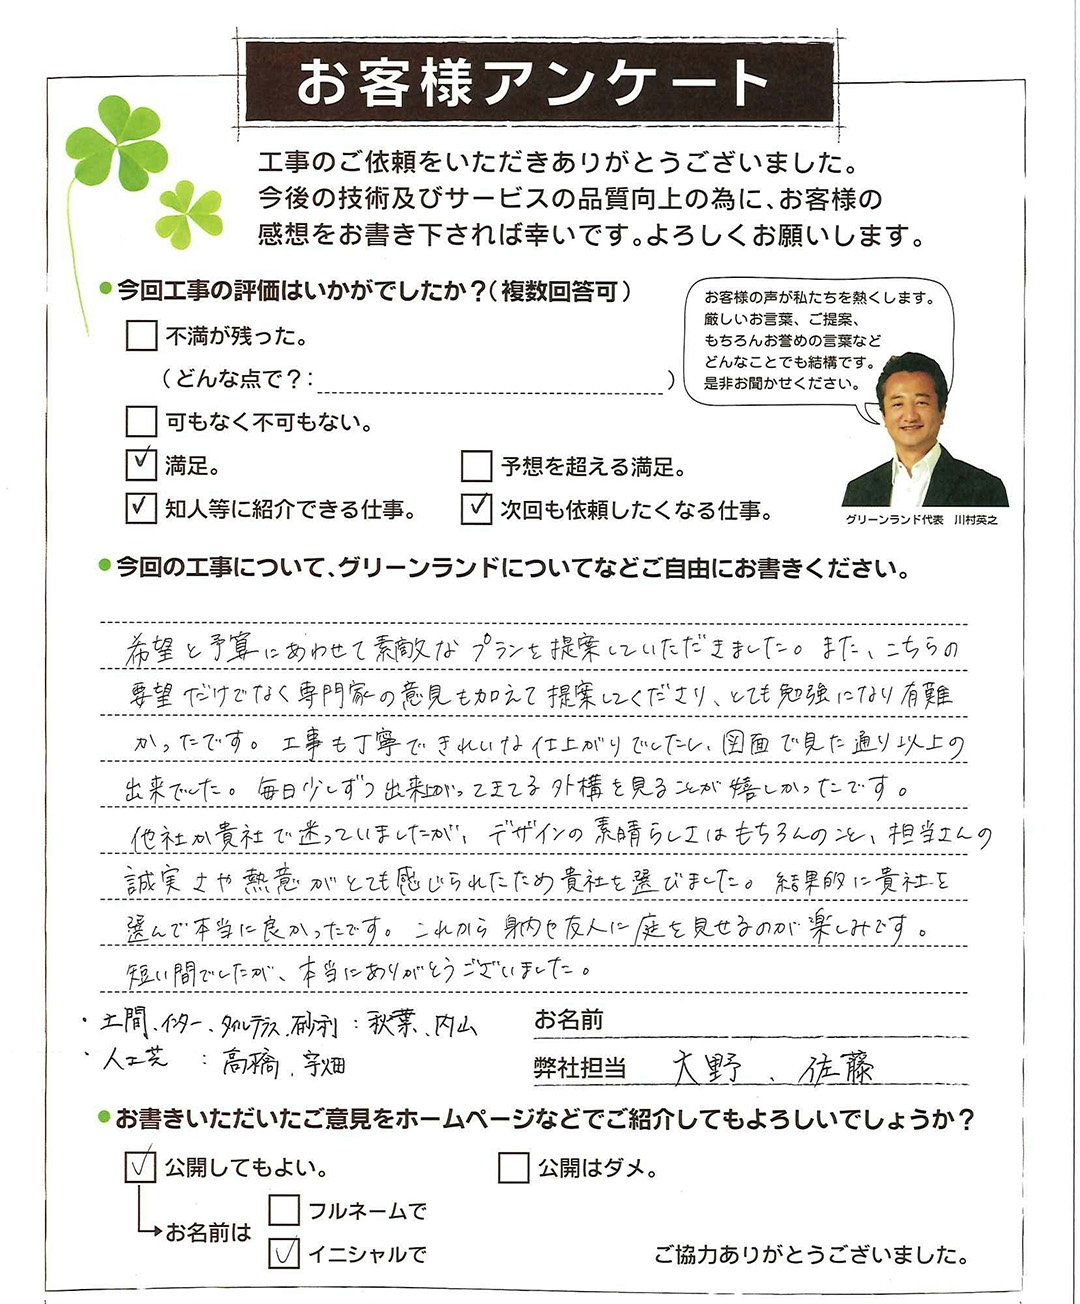 お客様アンケート
工事のご依頼をいただきありがとうございました。
今後の技術及びサービスの品質向上の為に、お客様の
感想をお書き下されば幸いです。よろしくお願いします。
●今回工事の評価はいかがでしたか？（複数回答可）
不満が残った。
（どんな点で？：　）
可もなく不可もない。
満足。
予想を超える満足。
知人等に紹介できる仕事。
次回も依頼したくなる仕事。
お客様の声が私たちを熱くします。
厳しいお言葉、ご提案、
もちろんお誉めの言葉など
どんなことでも結構です。
是非お聞かせください。
グリーンランド代表　川村英之
●今回の工事について、グリーンランドについてなどご自由にお書きください。
希望と予算にあわせて素敵なプランを提案していただきました。また、こちらの
要望だけでなく専門家の意見も加えて提案してくださり、とても勉強になり有難
かったです。工事も丁寧できれいな仕上がりでしたし、図面で見た通り以上の
出来でした。毎日少しずつ出来上がってきてる外構を見ることが嬉しかったです。
他社か貴社で迷っていましたが、デザインの素晴らしさはもちろんのこと、担当さんの
誠実さや熱意がとても感じられたため貴社を選びました。結果的に貴社を
選んで本当に良かったです。これから身内や友人に庭を見せるのが楽しみです。
短い間でしたが、本当にありがとうございました。
・土間、インター、タイルテラス、砂利：秋葉、内山
・人工芝　：高橋、宇畑
お名前
弊社担当　大野、佐藤
●お書きいただいたご意見をホームページなどでご紹介してもよろしいでしょうか？
公開してもよい。
公開はダメ。
お名前は
フルネームで
イニシャルで
ご協力ありがとうございました。